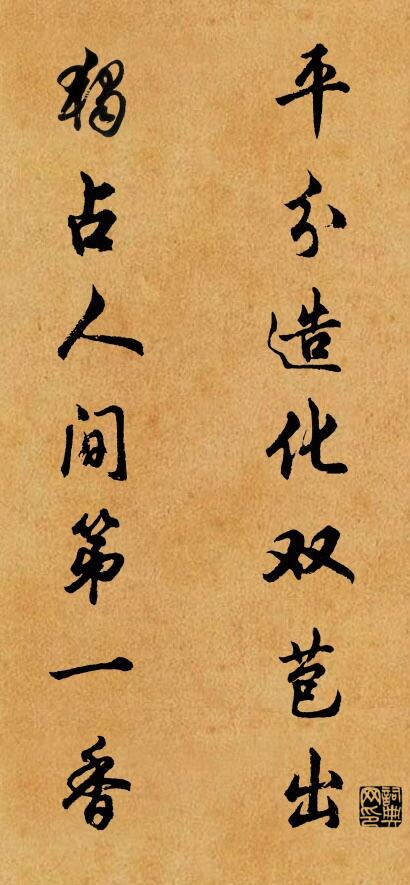 平分造化双苞出
独占人间第一香
词典网印